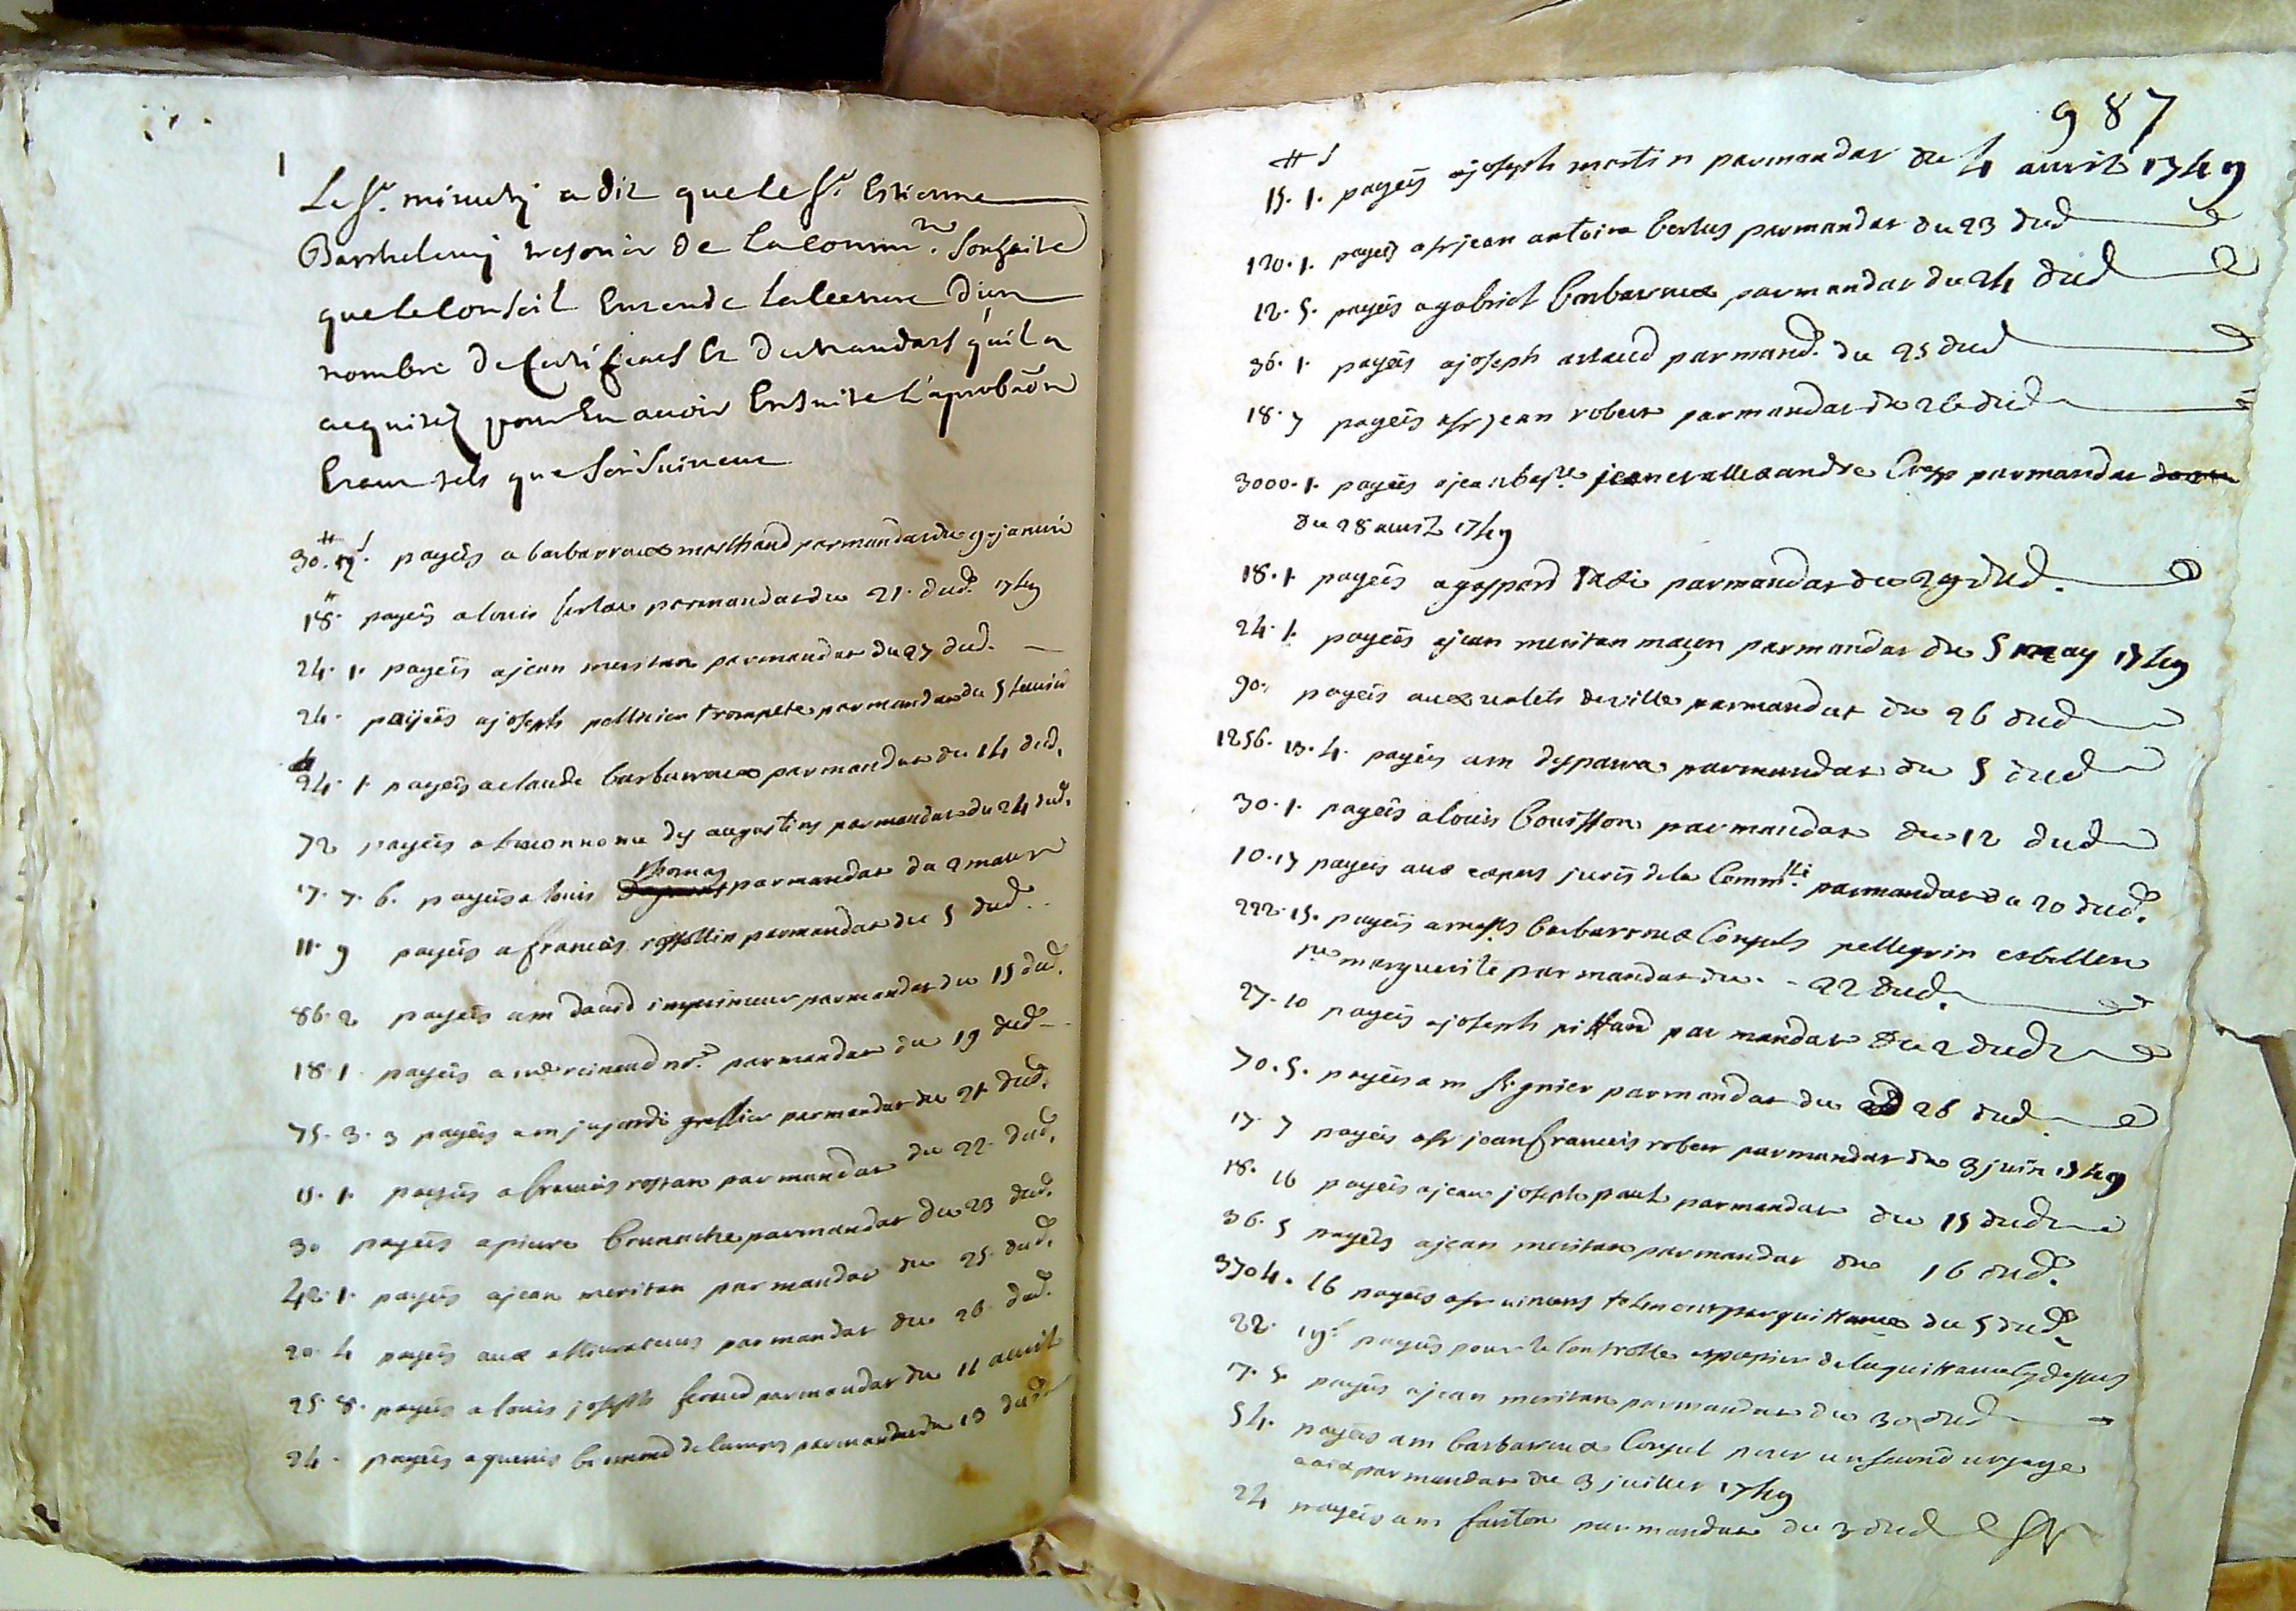 1
Le Sr. minuty a dit que le Sr. Estienne
Barthelemy tresorier de la Commté. souhaite
que le Conseil entende la lecture d'un
nombre de certificats et de mandats qu'il a
acquités pour en avoir ensuite l'aprobaõn
estant tels que s'en suivent
30. payés a barbarroux marchand par mandat du 9 janvier
18. payés a louis par mandat du 21. dud. 1749
24. 1. payés a jean meritan par mandat du 27 dud.
24. payés a joseph pellicier trompete par mandat du 5 feuvrier
24. 1 payés a claude barbarroux par mandat du 14 dud.
72 payés a leconnome des augustins par mandat du 24 dud.
17. 7. 6. payés a louis thomas par mandat du 2 mars
11. 9 payés a francois rossollin par mandat du 5 dud.
86. 2 payés a m david imprimeur par mandat du 15 dud.
18. 1 payés a me reinaud nore. par mandat du 19 dud
75. 3. 3 payés a m greffier par mandat du 21 dud.
11. 1. payés a francois rostan par mandat du 22. dud.
30 payés a pierre brunache par mandat du 23 dud.
42. 1. payés a jean meritan par mandat du 25. dud.
20. 4 payés aux par mandat du 26. dud.
25. 8. payés a louis joseph feraud par mandat du 11 avril
24. payés a par mandat du 13 dud
987
15. 1. payés a joseph martin par mandat du 4 avril 1749
120. 1. payés a sr jean antoine par mandat du 23 dud
12. 5. payés a gabriel barbarroux par mandat du 24 dud
36. 1. payés a joseph artaud par mand. du 25 dud
18. 7 payés a sr jean robert par mandat du 26 dud
3000. 1. payés a jean bapte. jean et allexandre Cresp par mandat
du 28 avril 1749
18. 1 payés a gaspard par mandat du 29 dud.
24. 1. payés a jean meritan maçon par mandat du 5 may 1749
90. payés aux valets de ville par mandat du 26 dud
1256. 13. 4. payés a m desparra par mandat du 5 dud
30. 1. payés a louis bouisson par mandat du 12 dud
10. 17 payés aux expers jurés de la Commté. par mandat du 20 dud.
222. 15. payés a messrs barbarroux Consuls pellegrin et bellen
marguerite par mandat du 22 dud.
27. 10 payés a joseph pissard par mandat du 2 dud
70. 5. payés a m signier par mandat du 26 dud.
17. 7 payés a sr jean francois robert par mandat du 3 juin 1749
18. 16 payés a jean joseph paul par mandat du 15 dud
36. 5 payés a jean meritan par mandat du 16 dud.
3704. 16 payés a sr vincens par quittance du 5 dud.
22. 19 payés pour le controlle et papier de la quittance cy dessus
17. 5 payés a jean meritan par mandat du 30 dud
54. payés a m barbarroux Consul pour un second voyage
a aix par mandat du 3 juillet 1749
24 payés a m fanton par mandat du 3 dud